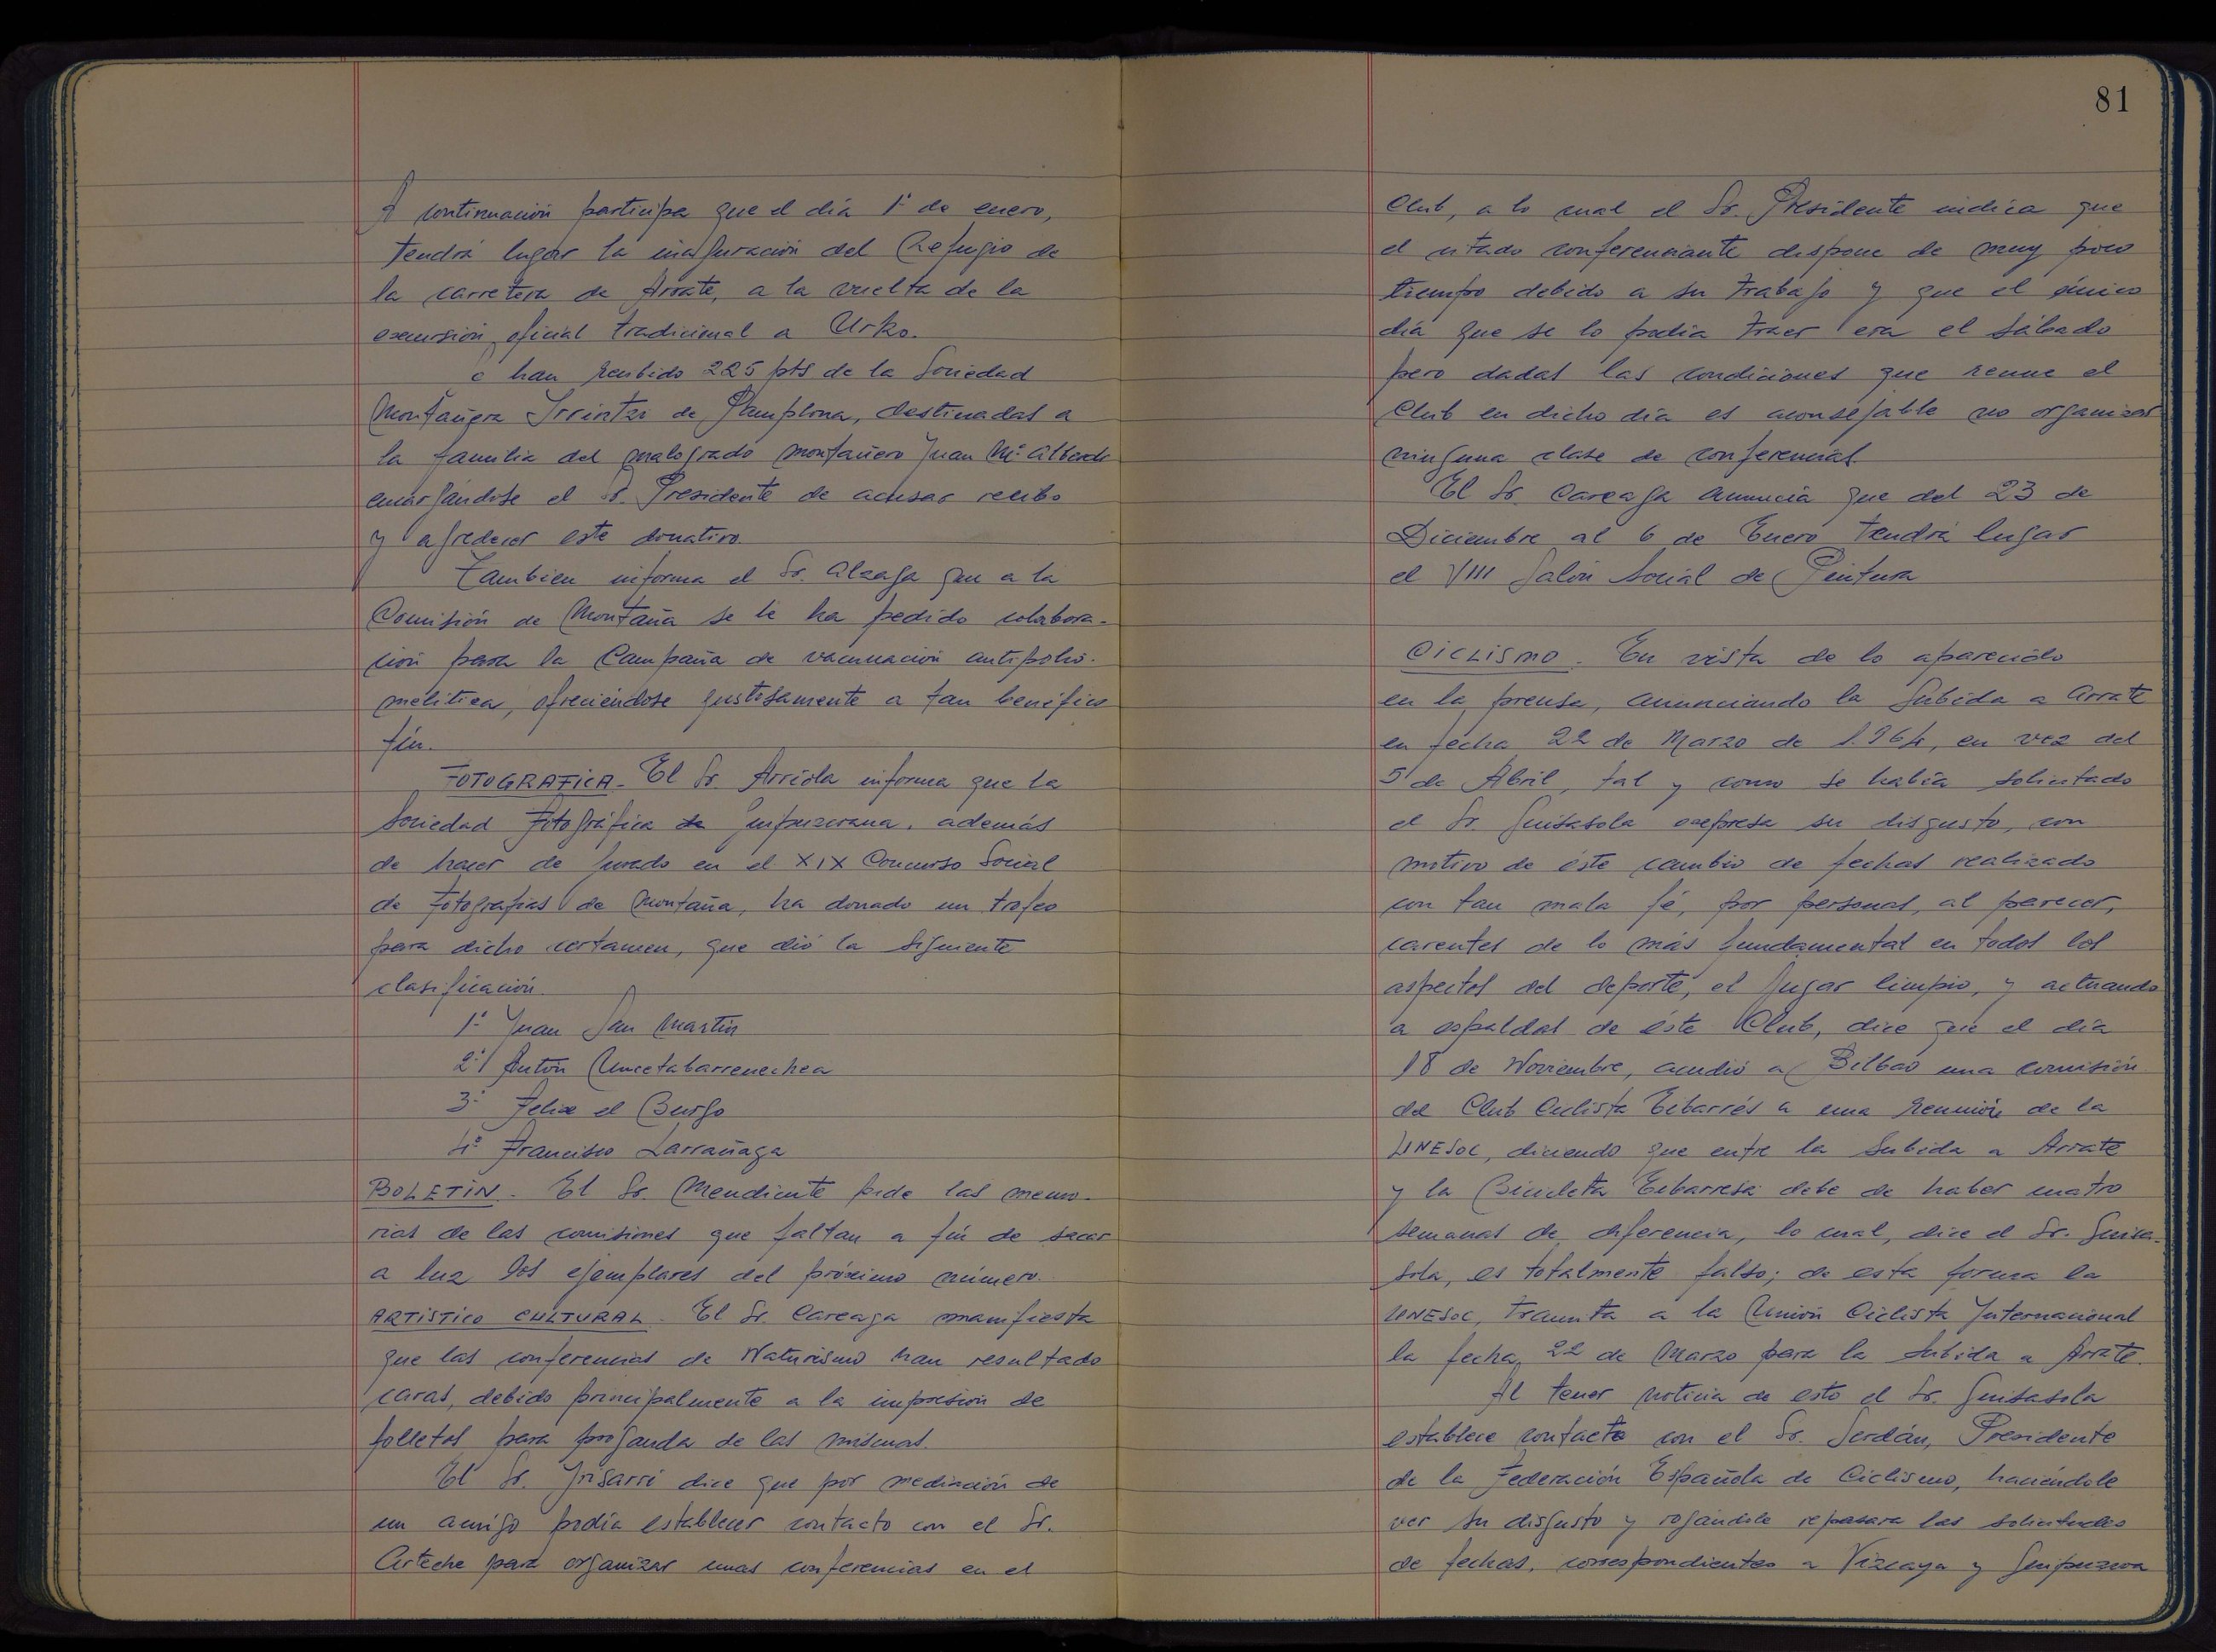 A continuación participa que el día 1º de enero,
tendrá lugar la inauguración del Refugio de
la carretera de Arrate, a la vuelta de la
excursión oficial tradicional a Urko.
e han recibido 225 pts de la Sociedad
Montañera Irrintzi de Pamplona, destinadas a
la familia del malogrado montañero Juan Mª
encargándose el Sr. Presidente de acusar recibo
y agradecer este donativo.
También informa el Sr. Alzaga que a la
Comisión de Montaña se le ha pedido colabora-
ción para la Campaña de vacunación antipolio-
melitica, ofreciéndose gustosamente a tan benéfico
fín.
FOTOGRAFICA - El Sr. Arriola informa que la
Sociedad Fotográfica de Guipuzcoana, además
de hacer de jurado en el XIX Concurso Social
de Fotografías de Montaña, ha donado un trofeo
para dicho certamen, que dió la siguiente
clasificación.
1º Juan San Martín
2º Antón Uncetabarrenechea
3º Felix el Burgo
4º Francisco Larrañaga
BOLETIN. El Sr. Mendicute pide las memo-
rias de las comisiones que faltan a fín de sacar
a luz los ejemplares del próximo número.
ARTISTICO CULTURAL. El Sr. Careaga manifiesta
que las conferencias de Naturismo han resultado
caras, debido principalmente a la impresión de
folletos para proganda de las mismas.
El Sr. Irisarri dice que por mediación de
un amigo podía establecer contacto con el Sr.
Arteche para organizar unas conferencias en el
81
Club, a lo cual el Sr. Presidente indica que
el citado conferenciante dispone de muy poco
tiempo debido a su trabajo y que el único
día que se lo podía traer era el sábado
pero dadas las condiciones que reune el
Club en dicho día es aconsejable no organizar
ninguna clase de conferencias.
El Sr. Careaga anuncia que del 23 de
Diciembre al 6 de Enero tendrá lugar
el VIII Salón Social de Pintura
CICLISMO. En vista de lo aparecido
en la prensa, anunciando la Subida a Arrate
en fecha 22 de Marzo de 1.964, en vez del
5 de Abril, tal y como se había solicitado
el Sr. Guisasola expresa su disgusto, con
motivo de éste cambio de fechas realizado
con tan mala fé, por personas, al parecer,
carentes de lo más fundamental en todos los
aspectos del deporte, el jugar limpio, y actuando
a espaldas de éste Club, dice que el día
18 de Noviembre, acudió a Bilbao una comisión
del Club Ciclista Eibarrés a una reunión de la
UNESOC, diciendo que entre la Subida a Arrate
y la Bicicleta Eibarresa debe de haber cuatro
semanas de diferencia, lo cual, dice el Sr. Guisa-
sola, es totalmente falso; de esta forma la
UNESOC, tramita a la Unión Ciclista Internacional
la fecha 22 de Marzo para la Subida a Arrate.
Al tener noticia de esto el Sr. Guisasola
establece contacto con el Sr. Serdán, Presidente
de la Federación Española de Ciclismo, haciéndole
ver su disgusto y rogándole repasara las solicitudes
de fechas, correspondientes a Vizcaya y Guipuzcoa